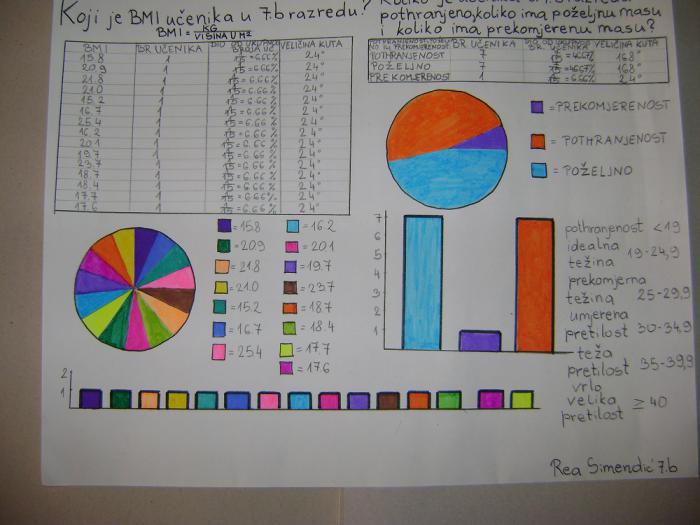 Koji je BMI učenika u 7.b razredu?
BMI = KG
VISINA U M2
BMI BR UČENIKA BROJA UČ VELIČINA KUTA
15.8 1 1/15 = 6.66% 24°
20.9 1 1/15 = 6.66% 24°
21.8 1 1/15 = 6.66% 24°
21.0 1 1/15 = 6.66% 24°
15.2 1 1/15 = 6.66% 24°
16.7 1 1/15 = 6.66% 24°
25.4 1 1/15 = 6.66% 24°
16.2 1 1/15 = 6.66% 24°
20.1 1 1/15 = 6.66% 24°
19.7 1 1/15 = 6.66% 24°
23.7 1 1/15 = 6.66% 24°
18.7 1 1/15 = 6.66% 24°
18.4 1 1/15 = 6.66% 24°
17.7 1 1/15 = 6.66% 24°
17.6 1 1/15 = 6.66% 24°
= 15.8
= 20.9
= 21.8
= 21.0
= 15.2
= 16.7
= 25.4
= 16.2
= 20.1
= 19.7
= 23.7
= 18.7
= 18.4
= 17.7
= 17.6
2
1
pothranjeno, koliko ima poželjnu masu
i koliko ima prekomjerenu masu?
BR. UČENIKA VELIČINA KUTA
POTHRANJENOST 7 168°
POŽELJNO 7 168°
PREKOMJERENOST 1 24°
= PREKOMJERENOST
= POTHRANJENOST
= POŽELJNO
7
6
5
4
3
2
1
pothranjenost <19
idealna
težina 19-24,9
prekomjerna
težina 25-29,9
umjerena
pretilost 30-34,9
teža
pretilost 35-39,9
vrlo
velika
pretilost ≥ 40
Rea Simendić 7.b